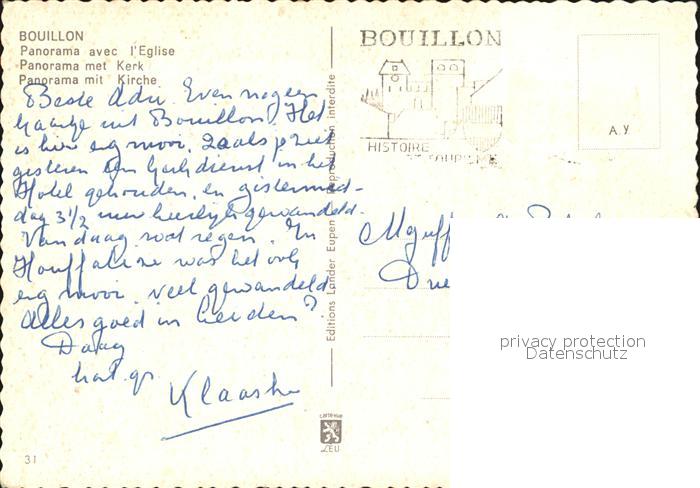 BOUILLON
Panorama avec l'Eglise
Panorama met Kerk
Panorama mit Kirche
Beste Adri. Even nog een
kaartje uit Bouillon. Het
is hier erg mooi. Zoals je ziet
gisteren een kerkdienst in het
Hotel gehouden, en gistermid-
dag 3 1/2 uur heerlijk gewandeld.
Vandaag wat regen. In
Houffalize was het ook
erg mooi. veel gewandeld
Alles goed in Leiden?
Daag
hart. gr.
Klaaske
31
Editions Lander Eupen Reproduction interdite
CARTEXWE
LEU
BOUILLON
HISTOIRE
ET TOURISME
A. y
Mejuff
Drie
privacy protection
Datenschutz